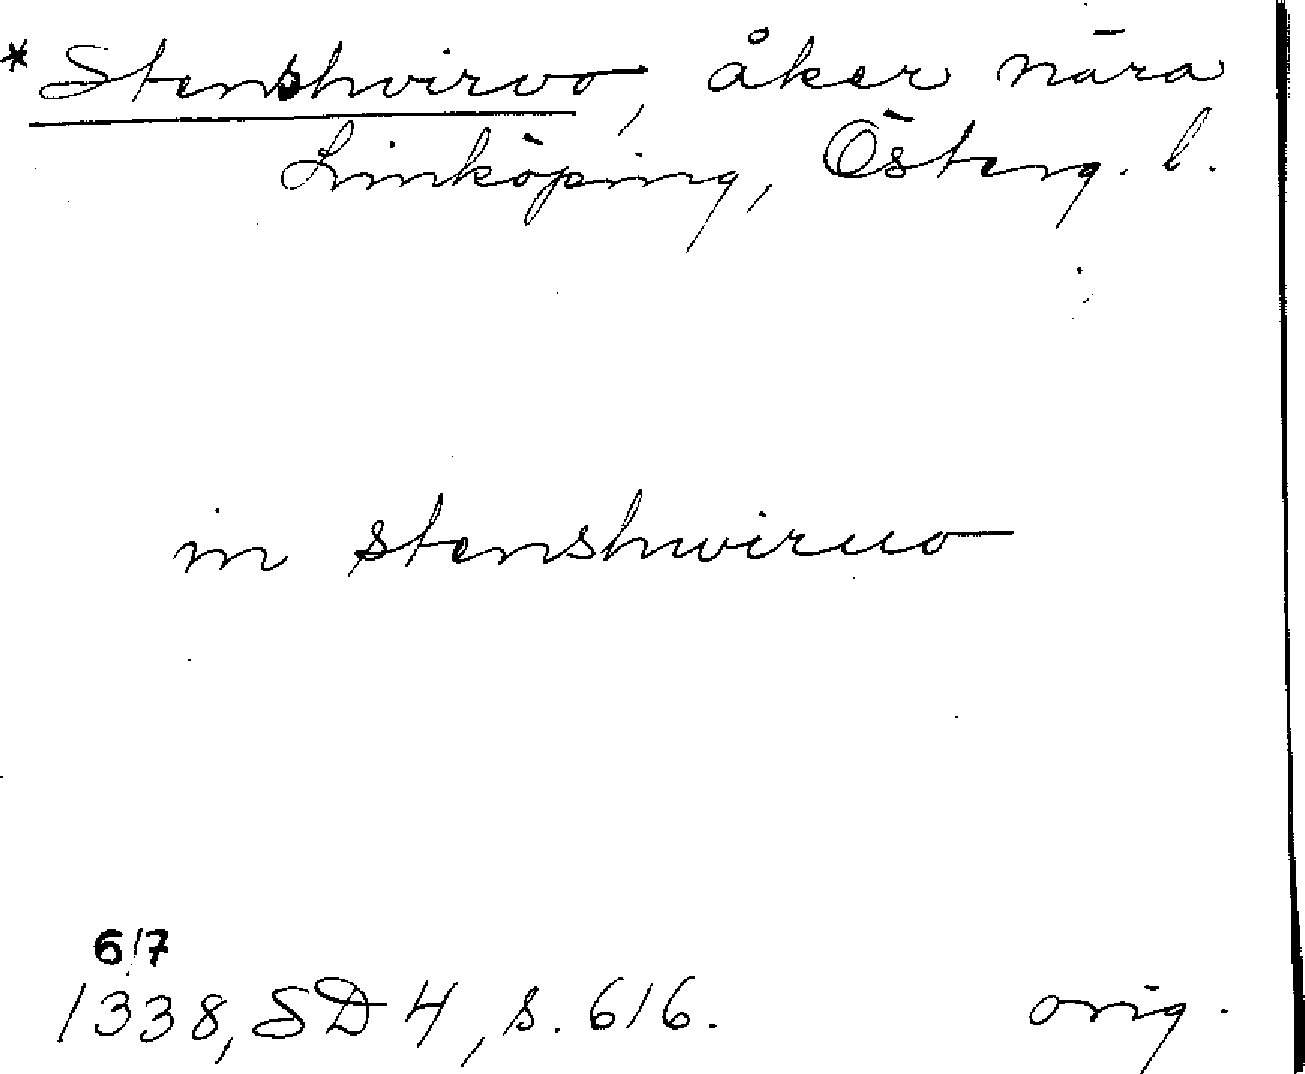 * Stenshvirvo, åker nära
Linköping, Österg. l.
in stenshwiruo
6/7
1338, SD 4, s. 616. orig.